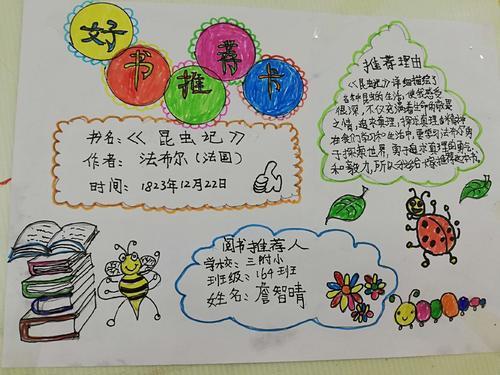 好书推荐卡
书名:《昆虫记》
作者:法布尔(法国)
时间:1823年12月22日
推荐理由
《昆虫记》详细描绘了
各种昆虫的生活,使我感受
很深,不仅充满着生命敬畏
之情,追求真理,探求真理的精神
在我们学习和生活中,更要像法布尔勇
于探索世界,勇于追求真理的勇气
和毅力,所以我给你推荐这本书。
图书推荐人
学校:三附小
班级:164班
姓名:詹智晴